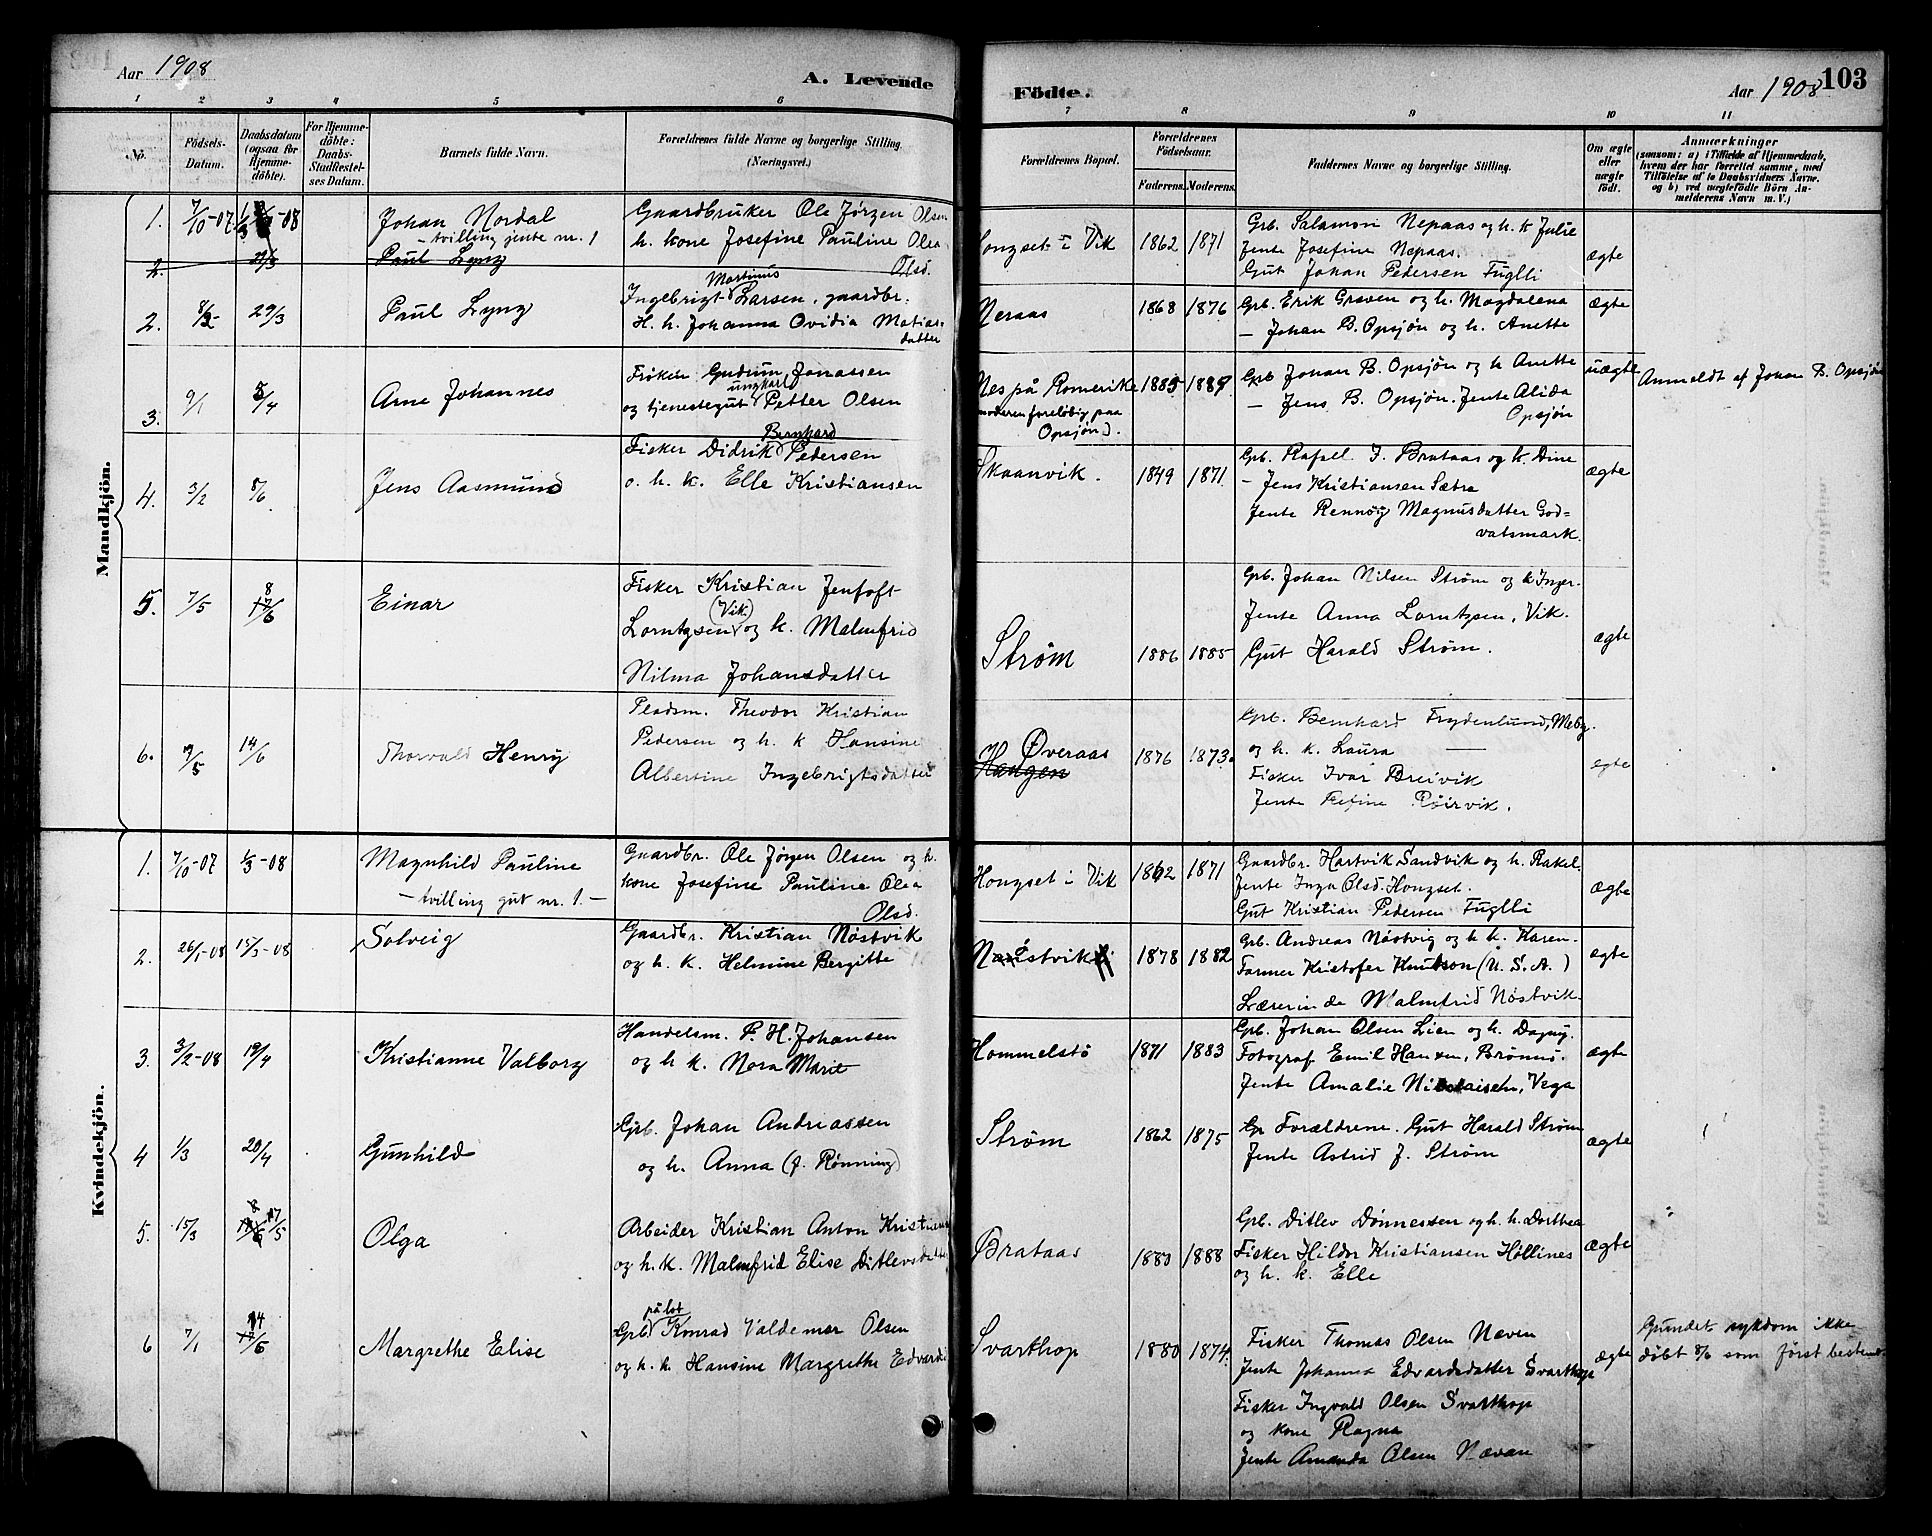 Aar 1908
A. Levende
Födte.
Aar 1908 103
1 2 3 4 5 6 7 8 9 10 11
No.
Födsels-Datum.
Daabsdatum (ogsaa for Hjemme-döbte).
For Hjemme-döbte: Daabs-Stadfæstel-ses Datum.
Barnets fulde Navn.
Forældrenes fulde Navne og borgerlige Stilling. (Næringsvei.)
Forældrenes Bopæl.
Forældrenes Födselsaar.
Faderens. Moderens.
Faddernes Navne og borgerlige Stilling.
Om ægte eller uægte födt.
Anmærkninger
(saasom: a) i Tilfælde af Hjemmedaab,
hvem der har forrettet samme, med
Tilföielse af to Daabsvidners Navne.
og b) ved uægtefödte Börn An-
melderens Navn m. V.)
Mandkjön.
1. 7/10-07 1/3-08 Johan Nordal
- tvilling jente nr. 1
Gaardbruker Ole Jörgen Olsen
h. kone Josefine Pauline Olea
Olsd.
Hongset i Vik 1862 1871
Grb. Salamon Nepaas og h. k Julie
Jente Josefine Nepaas.
Gut Johan Pedersen Fuglli
ægte
2. 29/3 Paul Lyng
2. 8/2- 29/3 Paul Lyng
Martinus
Ingebrigt Larsen, gaardbr.
H. h. Johanna Ovidia Matias-
datter
Neraas 1868 1876
Grb. Erik Graven og h. Magdalena
- Johan B. Opsjøn og h. Anette
ægte
3. 9/1 5/4 Arne Johannes
Frøken Gudrun Jonassen
ungkarl
og tjenestegut Petter Olsen
Nes på Romerike
moderen foreløbig paa
Opsjøn).
1885 1889
Grb Johan B. Opsjøn og h Anette
- Jens B. Opsjøn. Jente Alida
Opsjøn
uægte
Anmeldt af Johan B. Opsjøn
4. 3/2 8/6 Jens Aasmund
Bernhard
Fisker Didrik Pedersen
o. h. k. Elle Kristiansen
Skaanvik. 1849 1871
Grb. Rafael J. Brataas og k. Dine
- Jens Kristiansen Sætra
Jente Rennøy Magnusdatter God=
vatsmark.
ægte
5. 7/5 8/6 Einar
Fisker Kristian Jentoft
(Vik)
Lorntzsen og k. Malmfrid
Nilma Johansdatter
Strøm 1886 1885
Grb. Johan Nilsen Strøm og k Inger.
Jente Anna Lorntzsen, Vik.
Gut Harald Strøm.
ægte
6. 9/5 14/6 Thorvald Henry
Pladsm. Theodor Kristian
Pedersen og h. k Hansine
Albertine Ingebrigtsdatter
Øveraas
Haugen
1876 1873.
Grb. Bernhard Frydenlund, Meby.
og h. k. Laura —
Fisker Ivar Breivik
Jente Refine Røirvik.
egte
Kvindekjön.
1. 7/10-07 1/3-08 Magnhild Pauline
- tvilling gut nr. 1. -
Gaardbr. Ole Jørgen Olsen og h.
kone Josefine Pauline Olea
Olsd.
Hongset i Vik 1862 1871
Gaardbr. Hartvik Sandvik og h. Rakel.
Jente Inga Olsd. Hongset.
Gut Kristian Pedersen Fuglli
ægte
2. 26/1-08 15/3-08 Solveig
Gaardbr. Kristian Nøstvik
og h. k. Helmine Bergitte
Nøstvik 1878 1882
Grb. Andreas Nøstvig og h k. Karen.
Farmer Kristofer Knutson (U. S. A.)
Lærerinde Malmfrid Nøstvik.
ægte
3. 3/2-08 19/4 Kristianne Valborg
Handelsm. P. H. Johansen
og h k. Nora Marie
Hommelstö 1871 1883
Grb. Johan Olsen Lien og h. Dagny.
Fotograf Emil Hansen, Brønnö.
Jente Amalie Nikolaisen, Vega
ægte
4 1/3 20/4 Gunhild
Grb. Johan Andreassen
og h. Anna (f. Rønning)
Strøm 1862 1875
Gr Forældrene. Gut Harald Strøm
Jente Astrid J. Strøm
ægte
5. 15/3 17/5 Olga
Arbeider Kristian Anton Kristiens
og h. k. Malmfrid Elise Ditlevsdatter
Brataas 1880 1888
Grb. Ditlev Dønnessen og h. h. Dorthea
Fisker Hildor Kristiansen Höllines
og h. k. Elle
ægte
6 7/1 14/6 Margrethe Elise
på lot
Grb Konrad Valdemar Olsen
og h. k Hansine Margrethe Edvardsd
Svarthop 1880 1874.
Fisker Thomas Olsen Næven
Jente Johanna Edvardsdatter Svarthop
Fisker Ingvald Olsen Svarthop
og kone Ragna
Jente Amanda Olsen Næven
ægte
Grundet sykdom ikke
døbt 8/6 som først bestemt.